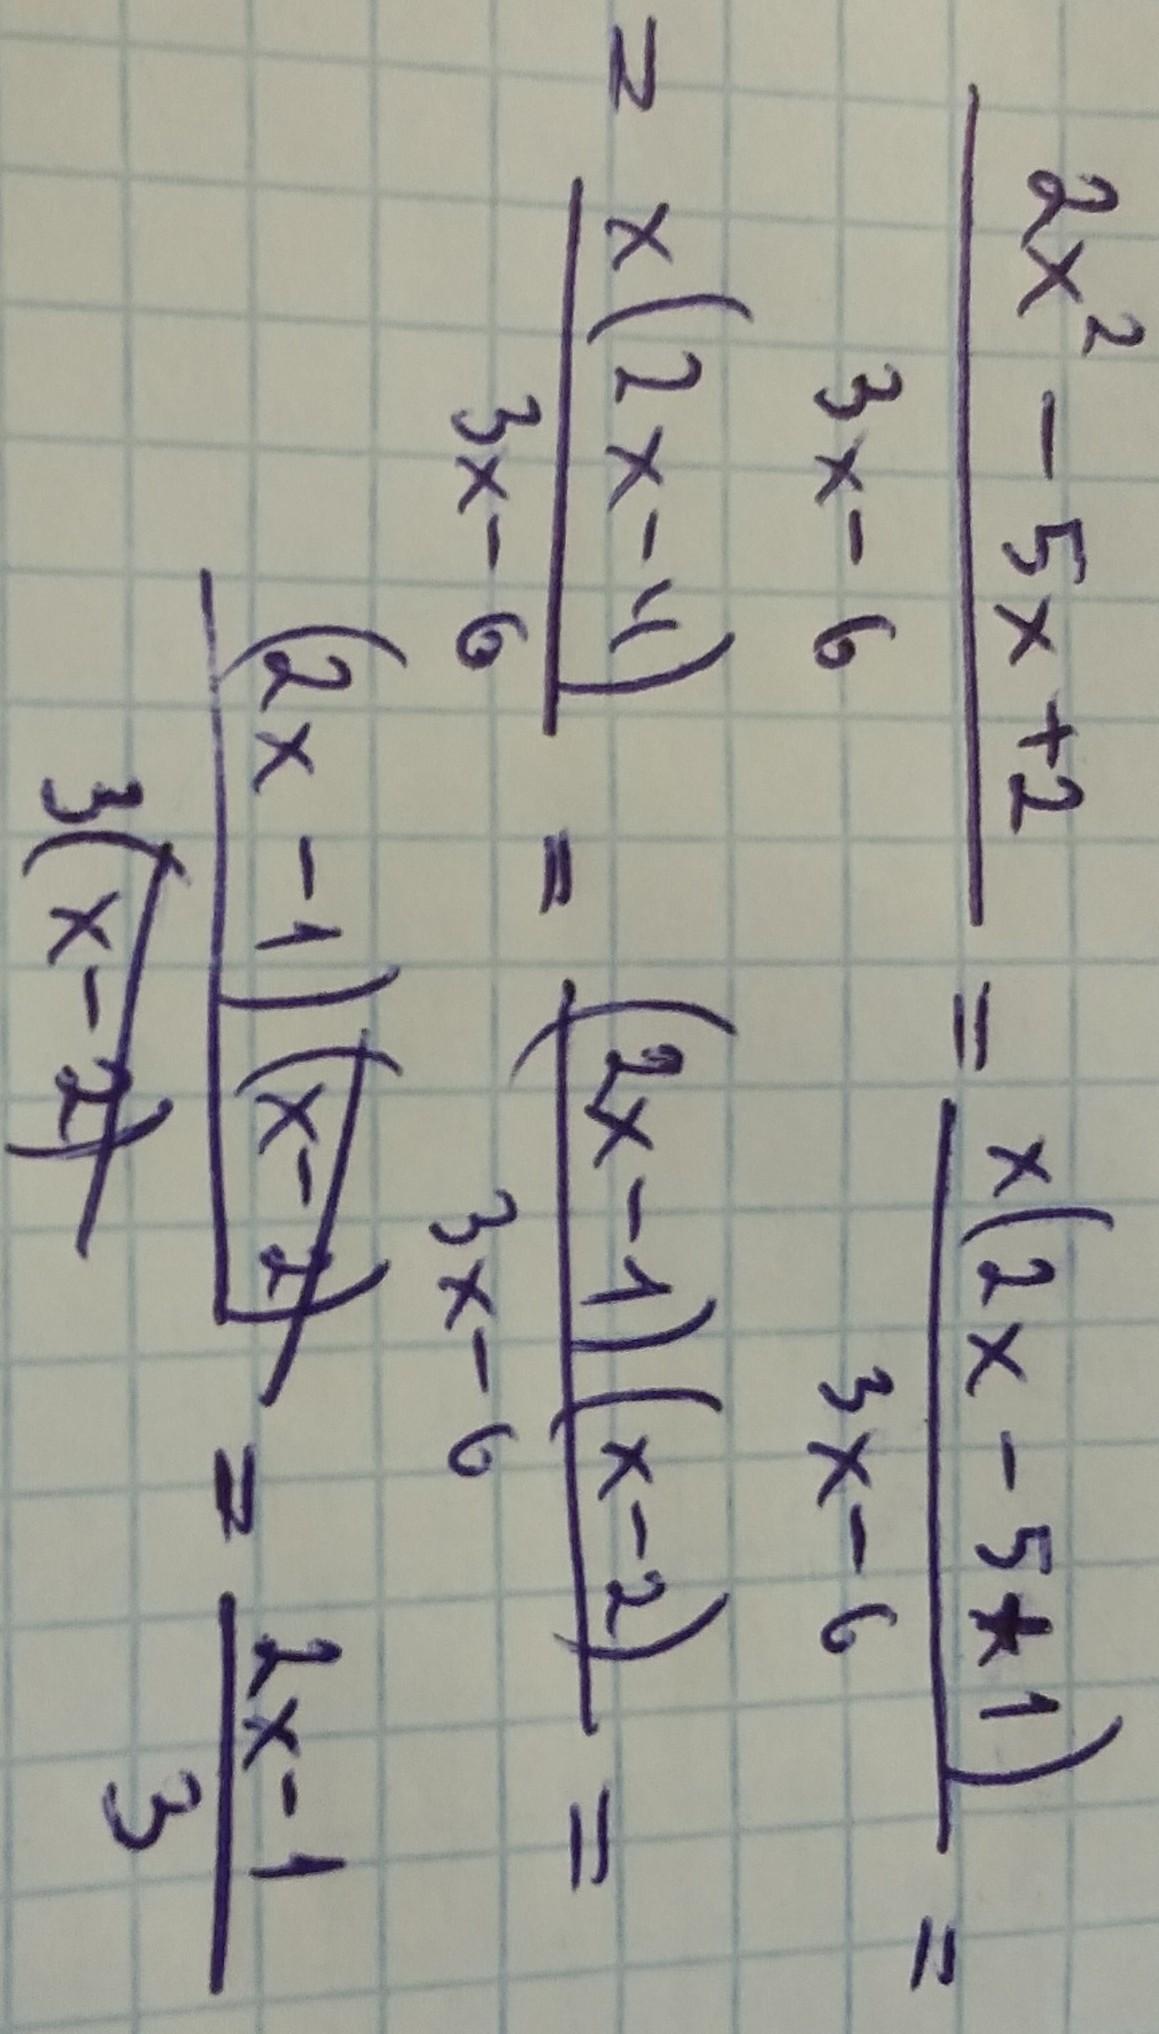 (2x² - 5x + 2)/(3x - 6) = x(2x - 5 + 1)/(3x - 6) =
= x(2x - 4)/(3x - 6) = (2x - 1)(x - 2)/(3x - 6) =
(2x - 1)(x - 2)/3(x - 2) = (2x - 1)/3